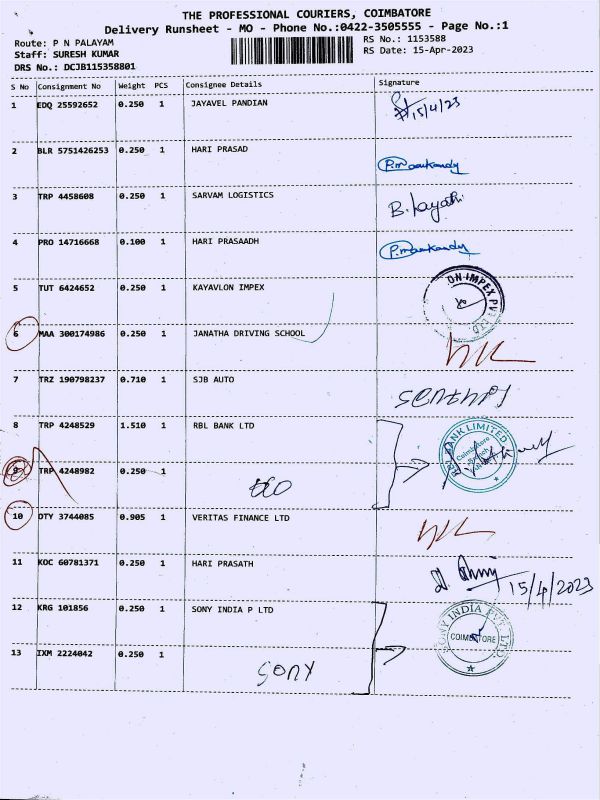 THE PROFESSIONAL COURIERS, COIMBATORE
Delivery Runsheet - MO - Phone No.:0422-3505555 - Page No.:1
Route: P N PALAYAM RS No.: 1153588
Staff: SURESH KUMAR RS Date: 15-Apr-2023
DRS No.: DCJB115358801
S No Consignment No Weight PCS Consignee Details Signature
1 EDQ 25592652 0.250 1 JAYAVEL PANDIAN 15/4/23
2 BLR 5751426253 0.250 1 HARI PRASAD
3 TRP 4458608 0.250 1 SARVAM LOGISTICS
4 PRO 14716668 0.100 1 HARI PRASAADH
5 TUT 6424652 0.250 1 KAYAVLON IMPEX ON IMPEX PVT LTD
6 MAA 300174986 0.250 1 JANATHA DRIVING SCHOOL
7 TRZ 190798237 0.710 1 SJB AUTO
8 TRP 4248529 1.510 1 RBL BANK LTD RBL BANK LIMITED Coimbatore Branch
9 TRP 4248982 0.250 1
10 OTY 3744085 0.905 1 VERITAS FINANCE LTD
11 KOC 60781371 0.250 1 HARI PRASATH 15/4/2023
12 KRG 101856 0.250 1 SONY INDIA P LTD SONY INDIA PVT. LTD. COIMBATORE
13 IXM 2224042 0.250 1 SONY